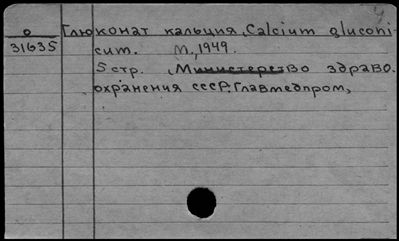 о Глюконат кальция, Calcium gluconi-
31635 cum. М., 1949.
5 стр. Министерство здраво.
охранения СССР. Главмедпром,